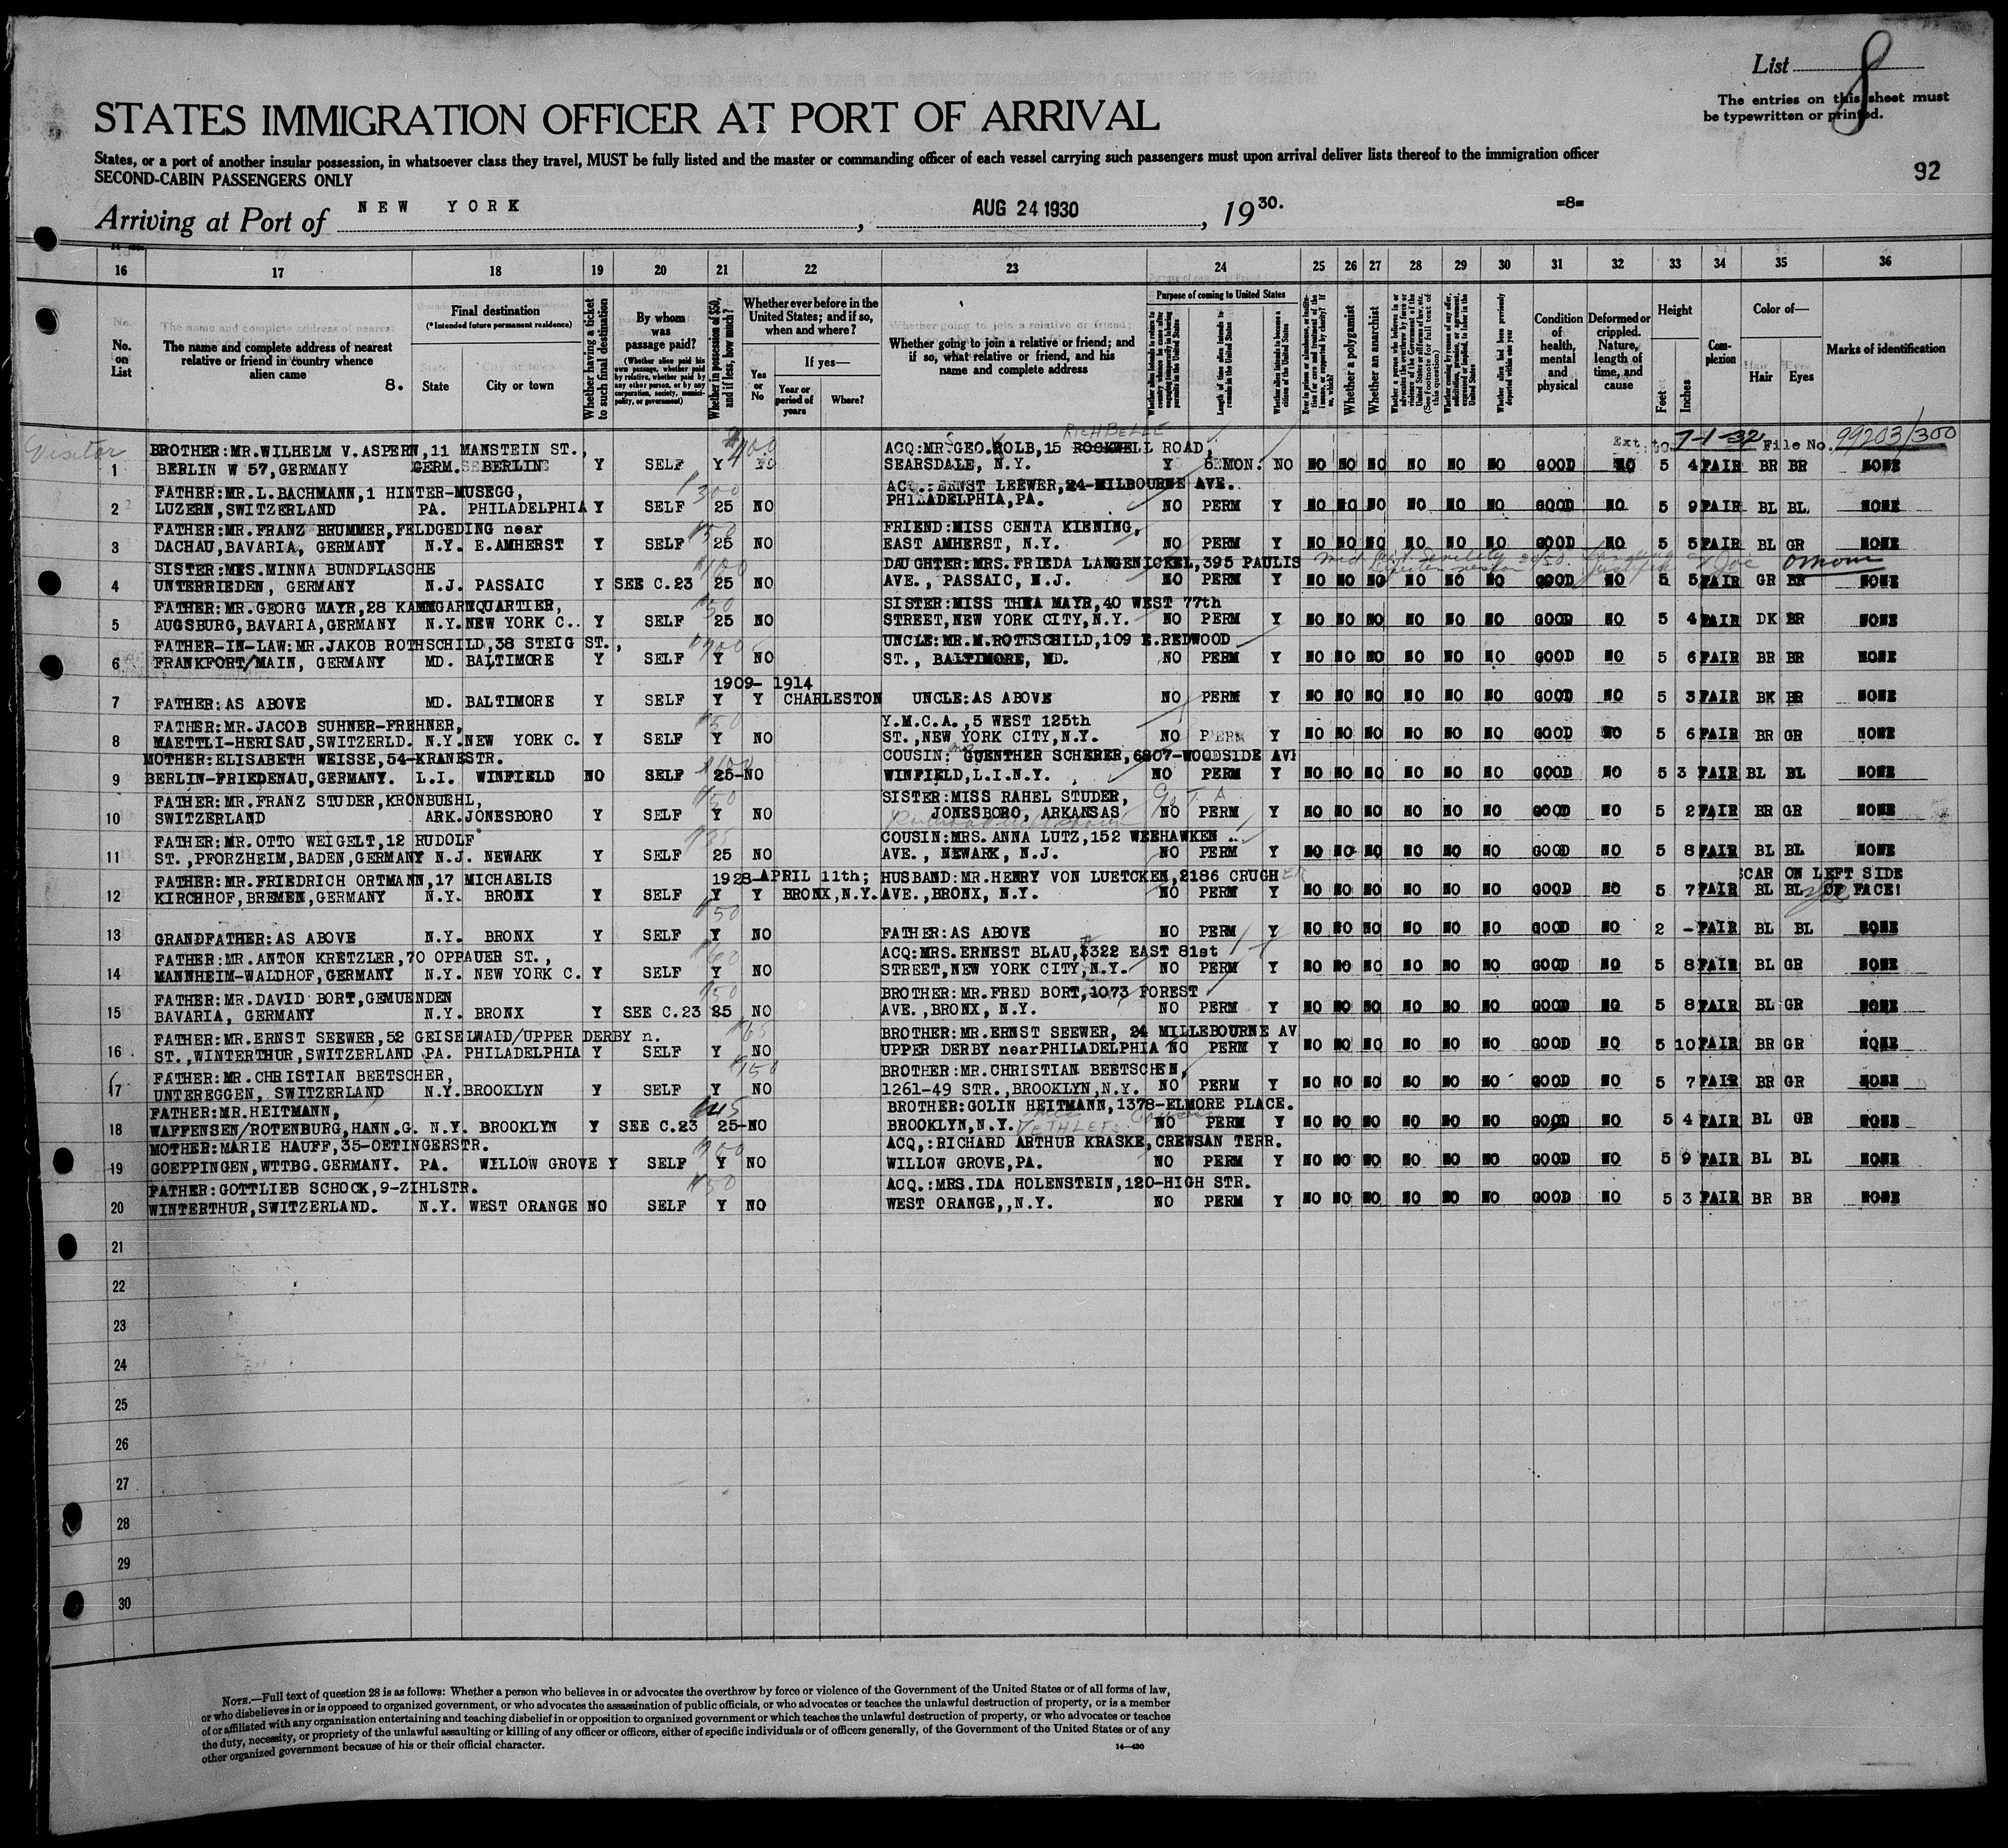 List 8
The entries on this sheet must
be typewritten or printed.
STATES IMMIGRATION OFFICER AT PORT OF ARRIVAL
States, or a port of another insular possession, in whatsoever class they travel, MUST be fully listed and the master or commanding officer of each vessel carrying such passengers must upon arrival deliver lists thereof to the immigration officer
SECOND-CABIN PASSENGERS ONLY
92
Arriving at Port of NEW YORK, AUG 24 1930, 1930.
-8-
16 17 18 19 20 21 22 23 24 25 26 27 28 29 30 31 32 33 34 35 36
No. on List
The name and complete address of nearest relative or friend in country whence alien came
8.
Final destination
(*Intended future permanent residence)
State
City or town
Whether having a ticket to such final destination
By whom was passage paid?
(Whether alien paid his own passage, whether paid by relative, whether paid by any other person, or by any corporation, society, municipality, or government)
Whether in possession of $50, and if less, how much?
Whether ever before in the United States; and if so, when and where?
Yes or No
If yes—
Year or period of years
Where?
Whether going to join a relative or friend; and if so, what relative or friend, and his name and complete address
Purpose of coming to United States
Whether alien intends to return to country whence he came after engaging temporarily in laboring pursuits in the United States
Length of time alien intends to remain in the United States
Whether alien intends to become a citizen of the United States
Ever in prison or almshouse, or institution for care and treatment of the insane, or supported by charity? If so, which?
Whether a polygamist
Whether an anarchist
Whether a person who believes in or advocates the overthrow by force or violence of the Government of the United States or all forms of law, etc. (See footnote for full text of this question)
Whether coming by reason of any offer, solicitation, promise, or agreement, expressed or implied, to labor in the United States
Whether alien had been previously deported within one year
Condition of health, mental and physical
Deformed or crippled. Nature, length of time, and cause
Height
Feet
Inches
Complexion
Color of—
Hair
Eyes
Marks of identification
Visitor
Ext. to 7-1-32 File No. 99203/300
1 BROTHER:MR.WILHELM V.ASPERN,11 MANSTEIN ST., $400 ACQ:MR.GEO.KOLB,15 ROCKWELL ROAD, RICHBELLE
BERLIN W 57,GERMANY GERM. BERLIN Y SELF Y NO SEARSDALE, N.Y. Y 6 MON. NO NO NO NO NO NO NO GOOD NO 5 4 FAIR BR BR NONE
2 FATHER:MR.L.BACHMANN,1 HINTER-MUSEGG, 300 ACQ.:ERNST LEEWER,24-MILBOURNE AVE.
LUZERN,SWITZERLAND PA. PHILADELPHIA Y SELF 25 NO PHILADELPHIA,PA. NO PERM Y NO NO NO NO NO NO GOOD NO 5 9 FAIR BL BL NONE
3 FATHER:MR.FRANZ BRUMMER,FELDGEDING near $50 FRIEND:MISS CENTA KIENING,
DACHAU,BAVARIA, GERMANY N.Y. E.AMHERST Y SELF 25 NO EAST AMHERST, N.Y. NO PERM Y NO NO NO NO NO NO GOOD NO 5 5 FAIR BL GR NONE
4 SISTER:MRS.MINNA BUNDFLASCHE $100 DAUGHTER:MRS.FRIEDA LANGENICKEL,395 PAULIS
UNTERRIEDEN, GERMANY N.J. PASSAIC Y SEE C.23 25 NO AVE., PASSAIC, N.J. NO PERM Y NO NO NO NO NO NO GOOD NO 5 5 FAIR GR BR NONE
5 FATHER:MR.GEORG MAYR,28 KAMMGARNQUARTIER, $50 SISTER:MISS THEA MAYR,40 WEST 77th
AUGSBURG,BAVARIA,GERMANY N.Y. NEW YORK C.. Y SELF 25 NO STREET,NEW YORK CITY,N.Y. NO PERM Y NO NO NO NO NO NO GOOD NO 5 4 FAIR DK BR NONE
6 FATHER-IN-LAW:MR.JAKOB ROTHSCHILD,38 STEIG ST., UNCLE:MR.M.ROTHSCHILD,109 E.REDWOOD
FRANKFORT/MAIN, GERMANY MD. BALTIMORE Y SELF Y NO ST., BALTIMORE, MD. NO PERM Y NO NO NO NO NO NO GOOD NO 5 6 FAIR BR BR NONE
1909- 1914
7 FATHER:AS ABOVE MD. BALTIMORE Y SELF Y Y CHARLESTON UNCLE:AS ABOVE NO PERM Y NO NO NO NO NO NO GOOD NO 5 3 FAIR BK BR NONE
8 FATHER:MR.JACOB SUHNER-FREHNER, $50 Y.M.C.A.,5 WEST 125th
MAETTLI-HERISAU,SWITZERLD. N.Y. NEW YORK C. Y SELF Y NO ST.,NEW YORK CITY,N.Y. NO PERM Y NO NO NO NO NO NO GOOD NO 5 6 FAIR BR GR NONE
9 MOTHER:ELISABETH WEISSE,54-KRANESTR. $100 COUSIN: GUENTHER SCHERER,6807-WOODSIDE AVE
BERLIN-FRIEDENAU,GERMANY. L.I. WINFIELD NO SELF 25-NO WINFIELD,L.I.N.Y. NO PERM Y NO NO NO NO NO NO GOOD NO 5 3 FAIR BL BL NONE
10 FATHER:MR.FRANZ STUDER,KRONBUEHL, $50 SISTER:MISS RAHEL STUDER,
SWITZERLAND ARK. JONESBORO Y SELF Y NO JONESBORO, ARKANSAS NO PERM Y NO NO NO NO NO NO GOOD NO 5 2 FAIR BR GR NONE
11 FATHER:MR.OTTO WEIGELT,12 RUDOLF COUSIN:MRS.ANNA LUTZ,152 WEEHAWKEN
ST.,PFORZHEIM,BADEN,GERMANY N.J. NEWARK Y SELF 25 NO AVE., NEWARK, N.J. NO PERM Y NO NO NO NO NO NO GOOD NO 5 8 FAIR BL BL NONE
12 FATHER:MR.FRIEDRICH ORTMANN,17 MICHAELIS 1928-APRIL 11th; HUSBAND:MR.HENRY VON LUETCKEN,2186 CRUGHER SCAR ON LEFT SIDE
KIRCHHOF,BREMEN,GERMANY N.Y. BRONX Y SELF Y Y BRONX,N.Y. AVE.,BRONX, N.Y. NO PERM Y NO NO NO NO NO NO GOOD NO 5 7 FAIR BL BL OF FACE!
$50
13 GRANDFATHER:AS ABOVE N.Y. BRONX Y SELF Y NO FATHER:AS ABOVE NO PERM Y NO NO NO NO NO NO GOOD NO 2 - FAIR BL BL NONE
14 FATHER:MR.ANTON KRETZLER,70 OPPAUER ST., $60 ACQ:MRS.ERNEST BLAU,322 EAST 81st
MANNHEIM-WALDHOF,GERMANY N.Y. NEW YORK C. Y SELF Y NO STREET,NEW YORK CITY,N.Y. NO PERM Y NO NO NO NO NO NO GOOD NO 5 8 FAIR BL GR NONE
15 FATHER:MR.DAVID BORT,GEMUENDEN $50 BROTHER:MR.FRED BORT,1073 FOREST
BAVARIA, GERMANY N.Y. BRONX Y SEE C.23 25 NO AVE.,BRONX, N.Y. NO PERM Y NO NO NO NO NO NO GOOD NO 5 8 FAIR BL GR NONE
16 FATHER:MR.ERNST SEEWER,52 GEISELWAID/UPPER DERBY n. $65 BROTHER:MR.ERNST SEEWER, 24 MILLEBOURNE AV
ST.,WINTERTHUR,SWITZERLAND PA. PHILADELPHIA Y SELF Y NO UPPER DERBY near PHILADELPHIA NO PERM Y NO NO NO NO NO NO GOOD NO 5 10 FAIR BR GR NONE
17 FATHER:MR.CHRISTIAN BEETSCHER, $150 BROTHER:MR.CHRISTIAN BEETSCHEN,
UNTEREGGEN, SWITZERLAND N.Y. BROOKLYN Y SELF Y NO 1261-49 STR.,BROOKLYN,N.Y. NO PERM Y NO NO NO NO NO NO GOOD NO 5 7 FAIR BR GR NONE
18 FATHER:MR.HEITMANN, 45 BROTHER:GOLIN HEITMANN,1378-ELMORE PLACE.
WAFFENSEN/ROTENBURG,HANN.G. N.Y. BROOKLYN Y SEE C.23 25-NO BROOKLYN,N.Y. NO PERM Y NO NO NO NO NO NO GOOD NO 5 4 FAIR BL GR NONE
19 MOTHER:MARIE HAUFF,35-OETINGERSTR. ACQ,:RICHARD ARTHUR KRASKE,CREWSAN TERR.
GOEPPINGEN,WTTBG.GERMANY. PA. WILLOW GROVE Y SELF Y NO WILLOW GROVE,PA. NO PERM Y NO NO NO NO NO NO GOOD NO 5 9 FAIR BL BL NONE
20 FATHER:GOTTLIEB SCHOCK,9-ZIHLSTR. $50 ACQ.:MRS.IDA HOLENSTEIN,120-HIGH STR.
WINTERTHUR,SWITZERLAND. N.Y. WEST ORANGE NO SELF Y NO WEST ORANGE,,N.Y. NO PERM Y NO NO NO NO NO NO GOOD NO 5 3 FAIR BR BR NONE
21
22
23
24
25
26
27
28
29
30
NOTE.—Full text of question 28 is as follows: Whether a person who believes in or advocates the overthrow by force or violence of the Government of the United States or of all forms of law,
or who disbelieves in or is opposed to organized government, or who advocates the assassination of public officials, or who advocates or teaches the unlawful destruction of property, or is a member
of or affiliated with any organization entertaining and teaching disbelief in or opposition to organized government or which teaches the unlawful destruction of property, or who advocates or teaches
the duty, necessity, or propriety of the unlawful assaulting or killing of any officer or officers, either of specific individuals or of officers generally, of the Government of the United States or of any
other organized government because of his or their official character.
14—430